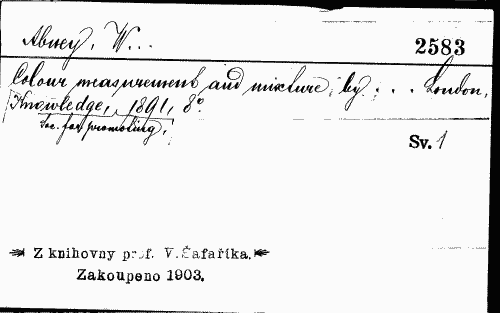 Abney, W...
2583
Colour measurement and mixture, by . . . London,
Knowledge, 1891, 8°
Soc. for promoting,
Sv. 1
Z knihovny prof. V. Šafaříka.
Zakoupeno 1903.